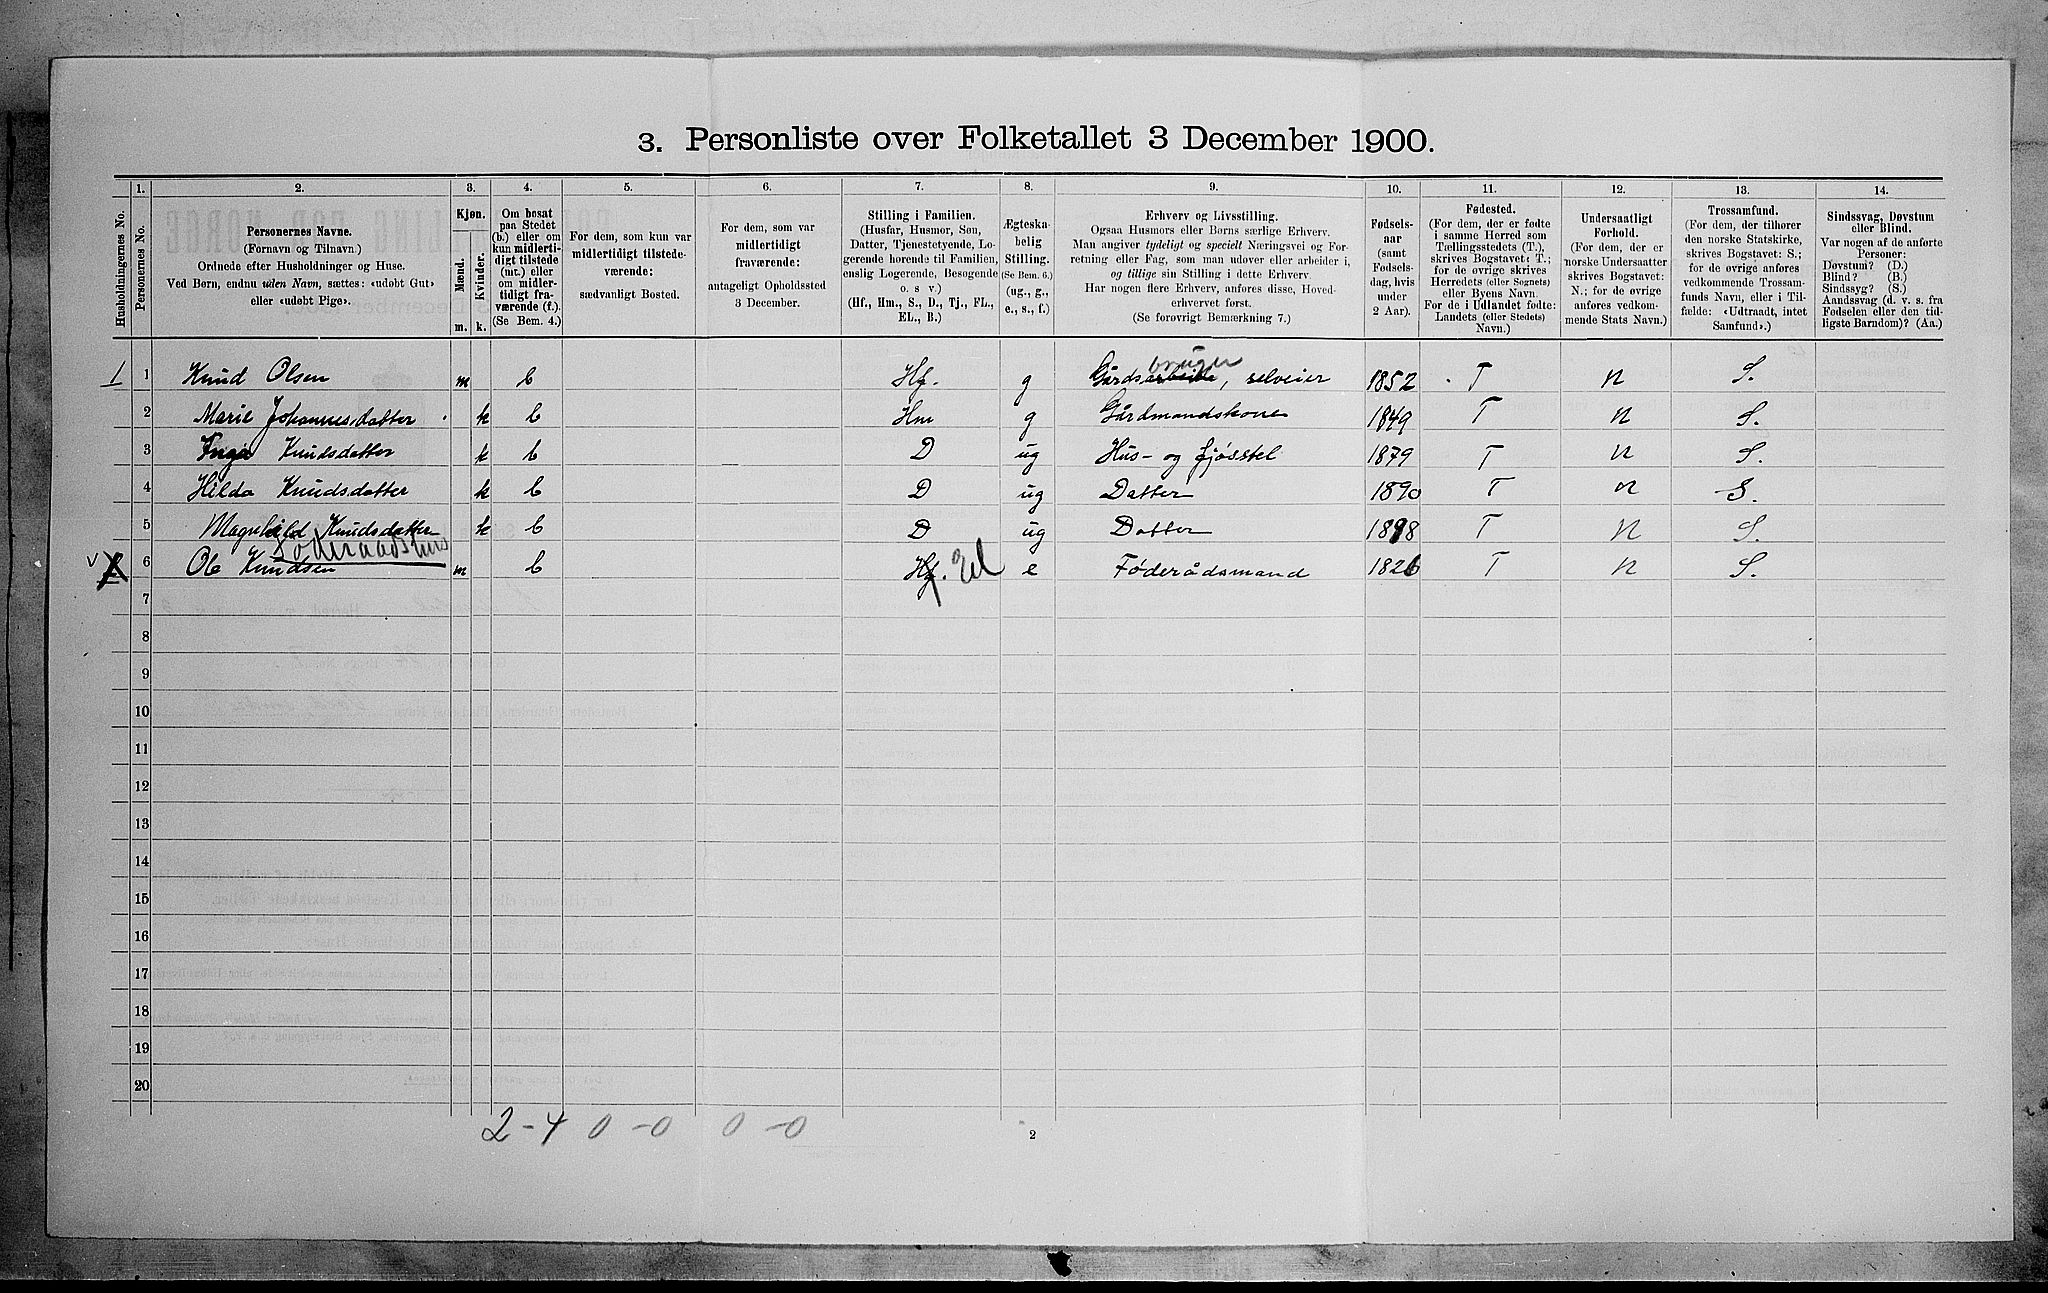 3. Personliste over Folketallet 3 December 1900.
Husholdningernes No.
1. Personernes No.
2. Personernes Navne.
(Fornavn og Tilnavn.)
Ordnede efter Husholdninger og Huse.
Ved Børn, endnu uden Navn, sættes: «udøbt Gut»
eller «udøbt Pige».
3. Kjøn.
Mænd. m.
Kvinder. k.
4. Om bosat
paa Stedet
(b.) eller om
kun midlerti-
digt tilstede
(mt.) eller
om midler-
tidigt fra-
værende (f.).
(Se Bem. 4.)
5. For dem, som kun var
midlertidigt tilstede-
værende:
sædvanligt Bosted.
6. For dem, som var
midlertidigt
fraværende:
antageligt Opholdssted
3 December.
7. Stilling i Familien.
(Husfar, Husmor, Søn,
Datter, Tjenestetyende, Lo-
gerende hørende til Familien,
enslig Logerende, Besøgende
o. s v.)
(Hf., Hm., S., D., Tj., FL.,
EL., B.)
8. Ægteska-
belig
Stilling.
(Se Bem. 6.)
(ug., g.,
e., s., f.)
9. Erhverv og Livsstilling.
Ogsaa Husmors eller Børns særlige Erhverv.
Man angiver tydeligt og specielt Næringsvei og For-
retning eller Fag, som man udøver eller arbeider i,
og tillige sin Stilling i dette Erhverv.
Har nogen flere Erhverv, anføres disse, Hoved-
erhvervet først.
(Se forøvrigt Bemærkning 7.)
10. Fødsels-
aar
(samt
Fødsels-
dag, hvis
under
2 Aar).
11. Fødested.
(For dem, der er fødte
i samme Herred som
Tællingsstedets (T.),
skrives Bogstavet: T.;
for de øvrige skrives
Herredets (eller Sognets)
eller Byens Navn.
For de i Udlandet fødte:
Landets (eller Stedets)
Navn.)
12. Undersaatligt
Forhold.
(For dem, der er
norske Undersaatter
skrives Bogstavet:
N.; for de øvrige
anføres vedkom-
mende Stats Navn.)
13. Trossamfund.
(For dem, der tilhører
den norske Statskirke,
skrives Bogstavet: S.;
for de øvrige anføres
vedkommende Trossam-
funds Navn, eller i Til-
fælde: «Udtraadt, intet
Samfund».)
14. Sindssvag, Døvstum
eller Blind.
Var nogen af de anførte
Personer:
Døvstum? (D.)
Blind? (B.)
Sindssyg? (S.)
Aandssvag (d. v. s. fra
Fødselen eller den tid-
ligste Barndom)? (Aa.)
bruger
1 1 Knud Olsen m b Hf. g Gårdsarbeide, selveier 1852 T n S.
2 Marie Johannesdatter k b Hm g Gårdmandskone 1849 T n S.
3 Inga Knudsdatter k b D ug Hus- og fjøsstel 1879 T n S.
4 Hilda Knudsdatter k b D ug Datter 1890 T n S.
5 Magnhild Knudsdatter k b D ug Datter 1898 T n S.
Föderaadshus
v 2 6 Ole Knudsen m b Hf. El e Føderådsmand 1826 T n S.
7
8
9
10
11
12
13
14
15
16
17
18
19
20
2-4 0-0 0-0
2